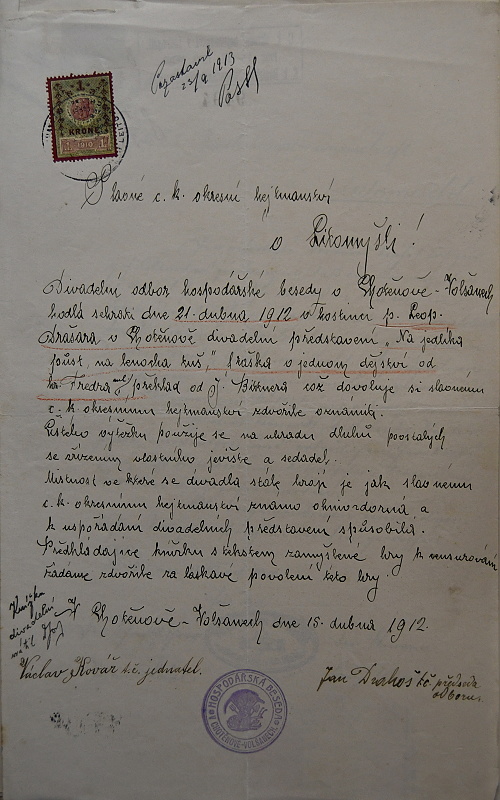 23/9 1913
1
KRONE
1910
Slavné c. k. okresní hejtmanství
v Litomyšli!
Divadelní odbor hospodářské besedy v Chotěnově-Volšanech
hodlá sehráti dne 21. dubna 1912 v hostinci p. Leop.
Drašara v Chotěnově divadelní představení „Na jedlíka
půst, na lenocha kus," fraška o jednom dějství od
Fredra, překlad od J. Bittnera což dovoluje si slavnému
c. k. okresnímu hejtmanství zdvořile oznámiti.
Čistého výtěžku použije se na úhradu dluhů povstalých
se zřízením vlastního jeviště a sedadel.
Místnost ve které se divadla stále hrají je jak slavnému
c. k. okresnímu hejtmanství známo ohnivzdorná a
k uspořádání divadelních představení spůsobilá.
Předkládajíce knížku s textem zamýšlené hry k censurování
žádáme zdvořile za láskavé povolení této hry.
V Chotěnově-Volšanech dne 15. dubna 1912.
Knížka
divadelní
Václav Kovář t.č. jednatel.
Jan Drahoš t.č. předseda
odboru.
HOSPODÁŘSKÁ BESEDA
CHOTĚNOVĚ-VOLŠANECH